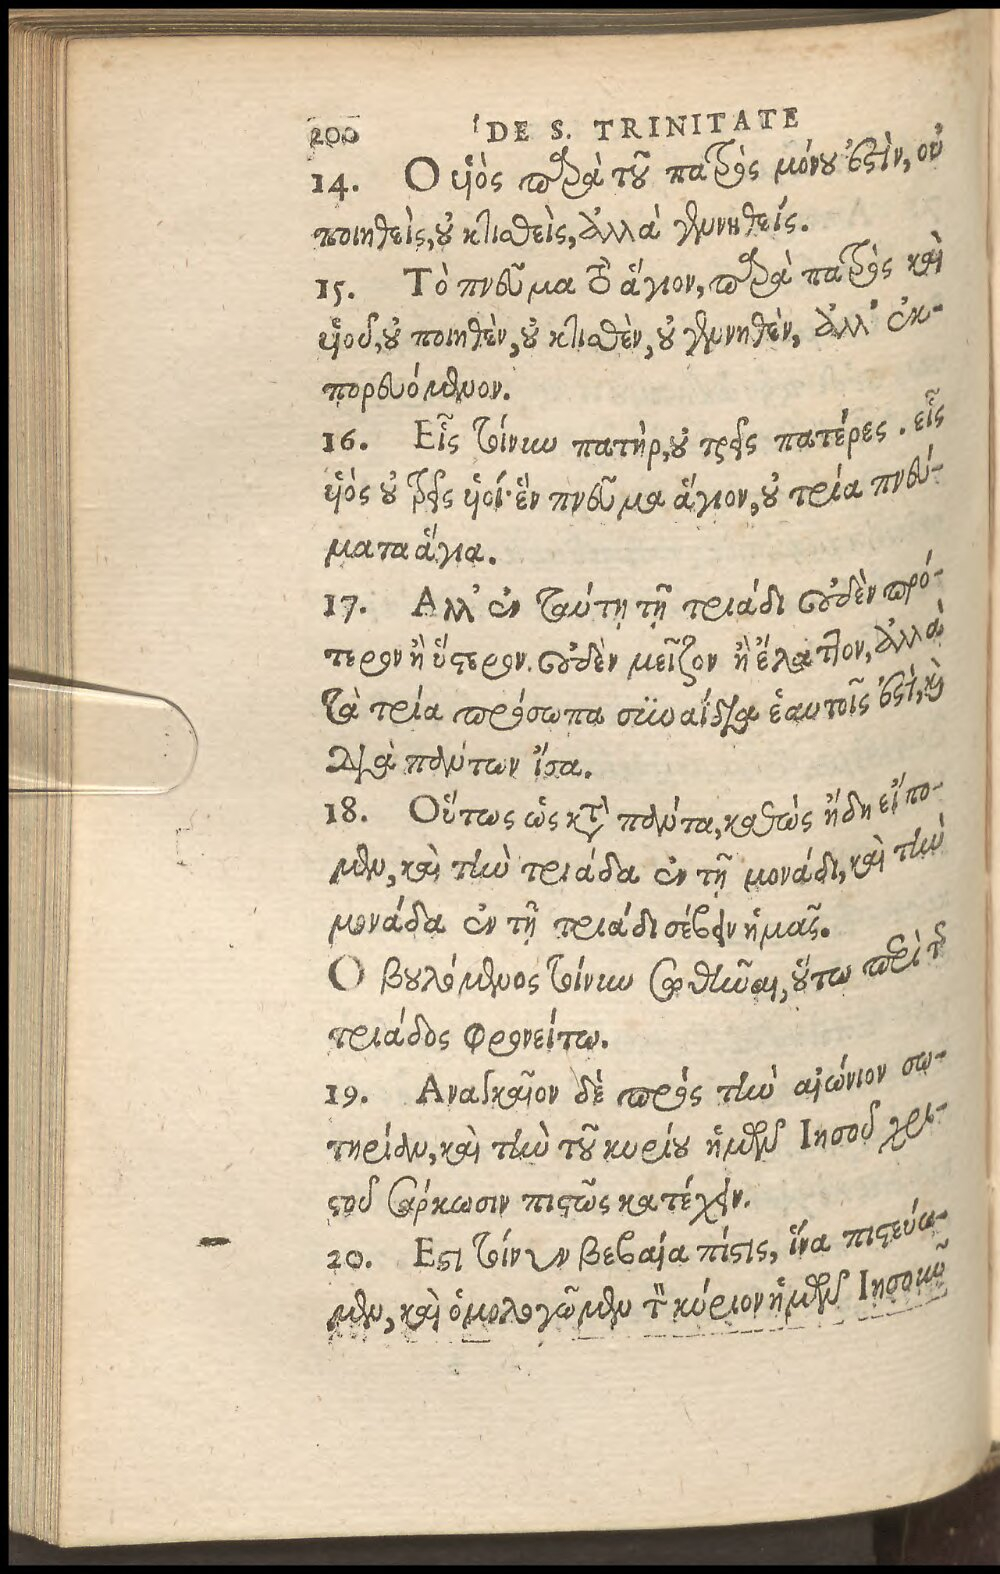 200 DE S. TRINITATE
14. Ο υἱὸς παρὰ τοῦ πατρὸς μόνου ἐστὶν, οὐ
ποιηθεὶς, οὐ κτισθεὶς, ἀλλὰ γεννηθείς.
15. Τὸ πνεῦμα τὸ ἅγιον, παρὰ πατρὸς καὶ
υἱοῦ, οὐ ποιηθὲν, οὐ κτισθὲν, οὐ γεννηθέν, ἀλλ' ἐκ-
πορευόμενον.
16. Εἷς τοίνυν πατὴρ, οὐ τρεῖς πατέρες. εἷς
υἱὸς οὐ τρεῖς υἱοί· ἓν πνεῦμα ἅγιον, οὐ τρία πνεύ-
ματα ἅγια.
17. Αλλ' ἐν ταύτῃ τῇ τριάδι οὐδὲν πρό-
τερον ἢ ὕστερον. οὐδὲν μεῖζον ἢ ἔλαττον, ἀλλὰ
τὰ τρία πρόσωπα συναΐδια ἑαυτοῖς ἐστί, καὶ
διὰ πάντων ἴσα.
18. Οὕτως ὡς κατὰ πάντα, καθὼς ἤδη εἴπο-
μεν, καὶ τὴν τριάδα ἐν τῇ μονάδι, καὶ τὴν
μονάδα ἐν τῇ τριάδι σέβειν ἡμᾶς.
Ο βουλόμενος τοίνυν σωθῆναι, οὕτω περὶ τῆς
τριάδος φρονείτω.
19. Αναγκαῖον δὲ πρὸς τὴν αἰώνιον σω-
τηρίαν, καὶ τὴν τοῦ κυρίου ἡμῶν Ιησοῦ χρι-
στοῦ σάρκωσιν πιστῶς κατέχειν.
20. Εστι τοίνυν βεβαία πίστις, ἵνα πιστεύω-
μεν, καὶ ὁμολογῶμεν τὸν κύριον ἡμῶν Ιησοῦν